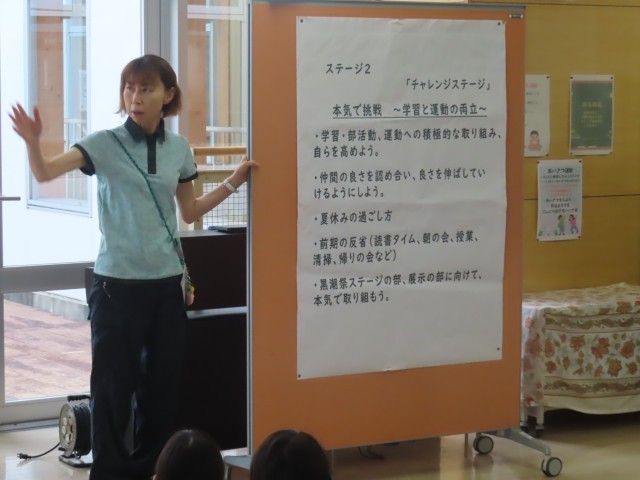 ステージ2
「チャレンジステージ」
本気で挑戦　～学習と運動の両立～
・学習・部活動、運動への積極的な取り組み、
自らを高めよう。
・仲間の良さを認め合い、良さを伸ばしてい
けるようにしよう。
・夏休みの過ごし方
・前期の反省（読書タイム、朝の会、授業、
清掃、帰りの会など）
・黒潮祭ステージの部、展示の部に向けて、
本気で取り組もう。